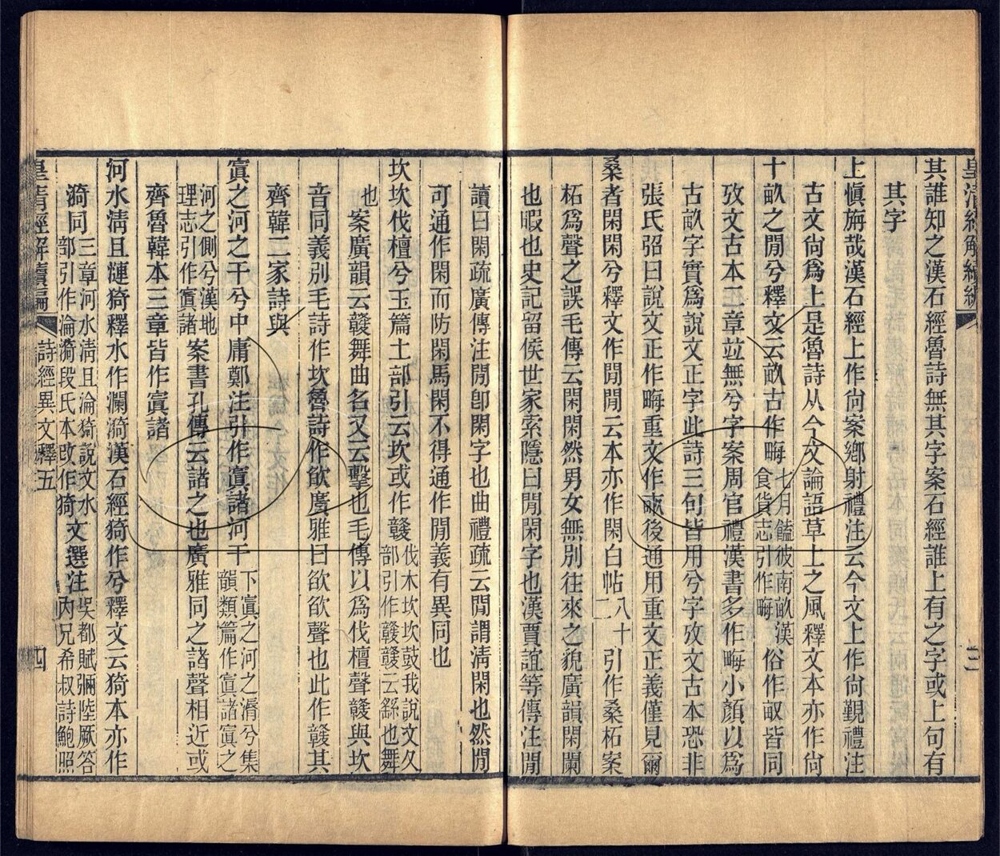 皇清經解續編
三
其誰知之漢石經魯詩無其字案石經誰上有之字或上句有
其字
上愼旃哉漢石經上作尙案鄉射禮注云今文上作尙覲禮注
古文尙爲上是魯詩从今文論語草上之風釋文本亦作尙
十畝之閒兮釋文云畝古作畮七月饁彼南畝漢食貨志引作畮俗作畝皆同
攷文古本二章竝無兮字案周官禮漢書多作畮小顔以爲
古畝字實爲說文正字此詩三句皆用兮字攷文古本恐非
張氏弨曰說文正作畮重文作畝後通用重文正義僅見爾
桑者閑閑兮釋文作閒閒云本亦作閑白帖八十二引作桑柘案
柘爲聲之誤毛傳云閑閑然男女無別往來之貌廣韻閑闌
也暇也史記留侯世家索隱曰閒閑字也漢賈誼等傳注閒
讀曰閑疏廣傳注閒卽閑字也曲禮疏云閒謂淸閑也然閒
可通作閑而防閑馬閑不得通作閒義有異同也
坎坎伐檀兮玉篇土部引云坎或作竷伐木坎坎鼓我說文夂部引作竷竷云繇也舞
也案廣韻云竷舞曲名又云擊也毛傳以爲伐檀聲竷與坎
音同義別毛詩作坎魯詩作欿廣雅曰欿欿聲也此作竷其
齊韓二家詩與
寘之河之干兮中庸鄭注引作寘諸河干下寘之河之漘兮集韻類篇作寘諸寘之
河之側兮漢地理志引作寘諸案書孔傳云諸之也廣雅同之諸聲相近或
齊魯韓本三章皆作寘諸
河水淸且漣猗釋水作瀾漪漢石經猗作兮釋文云猗本亦作
漪同三章河水淸且淪猗說文水部引作淪漪段氏本改作猗文選注吳都賦彌陸厥答內兄希叔詩鮑照
皇淸經解續編
詩經異文釋五
四